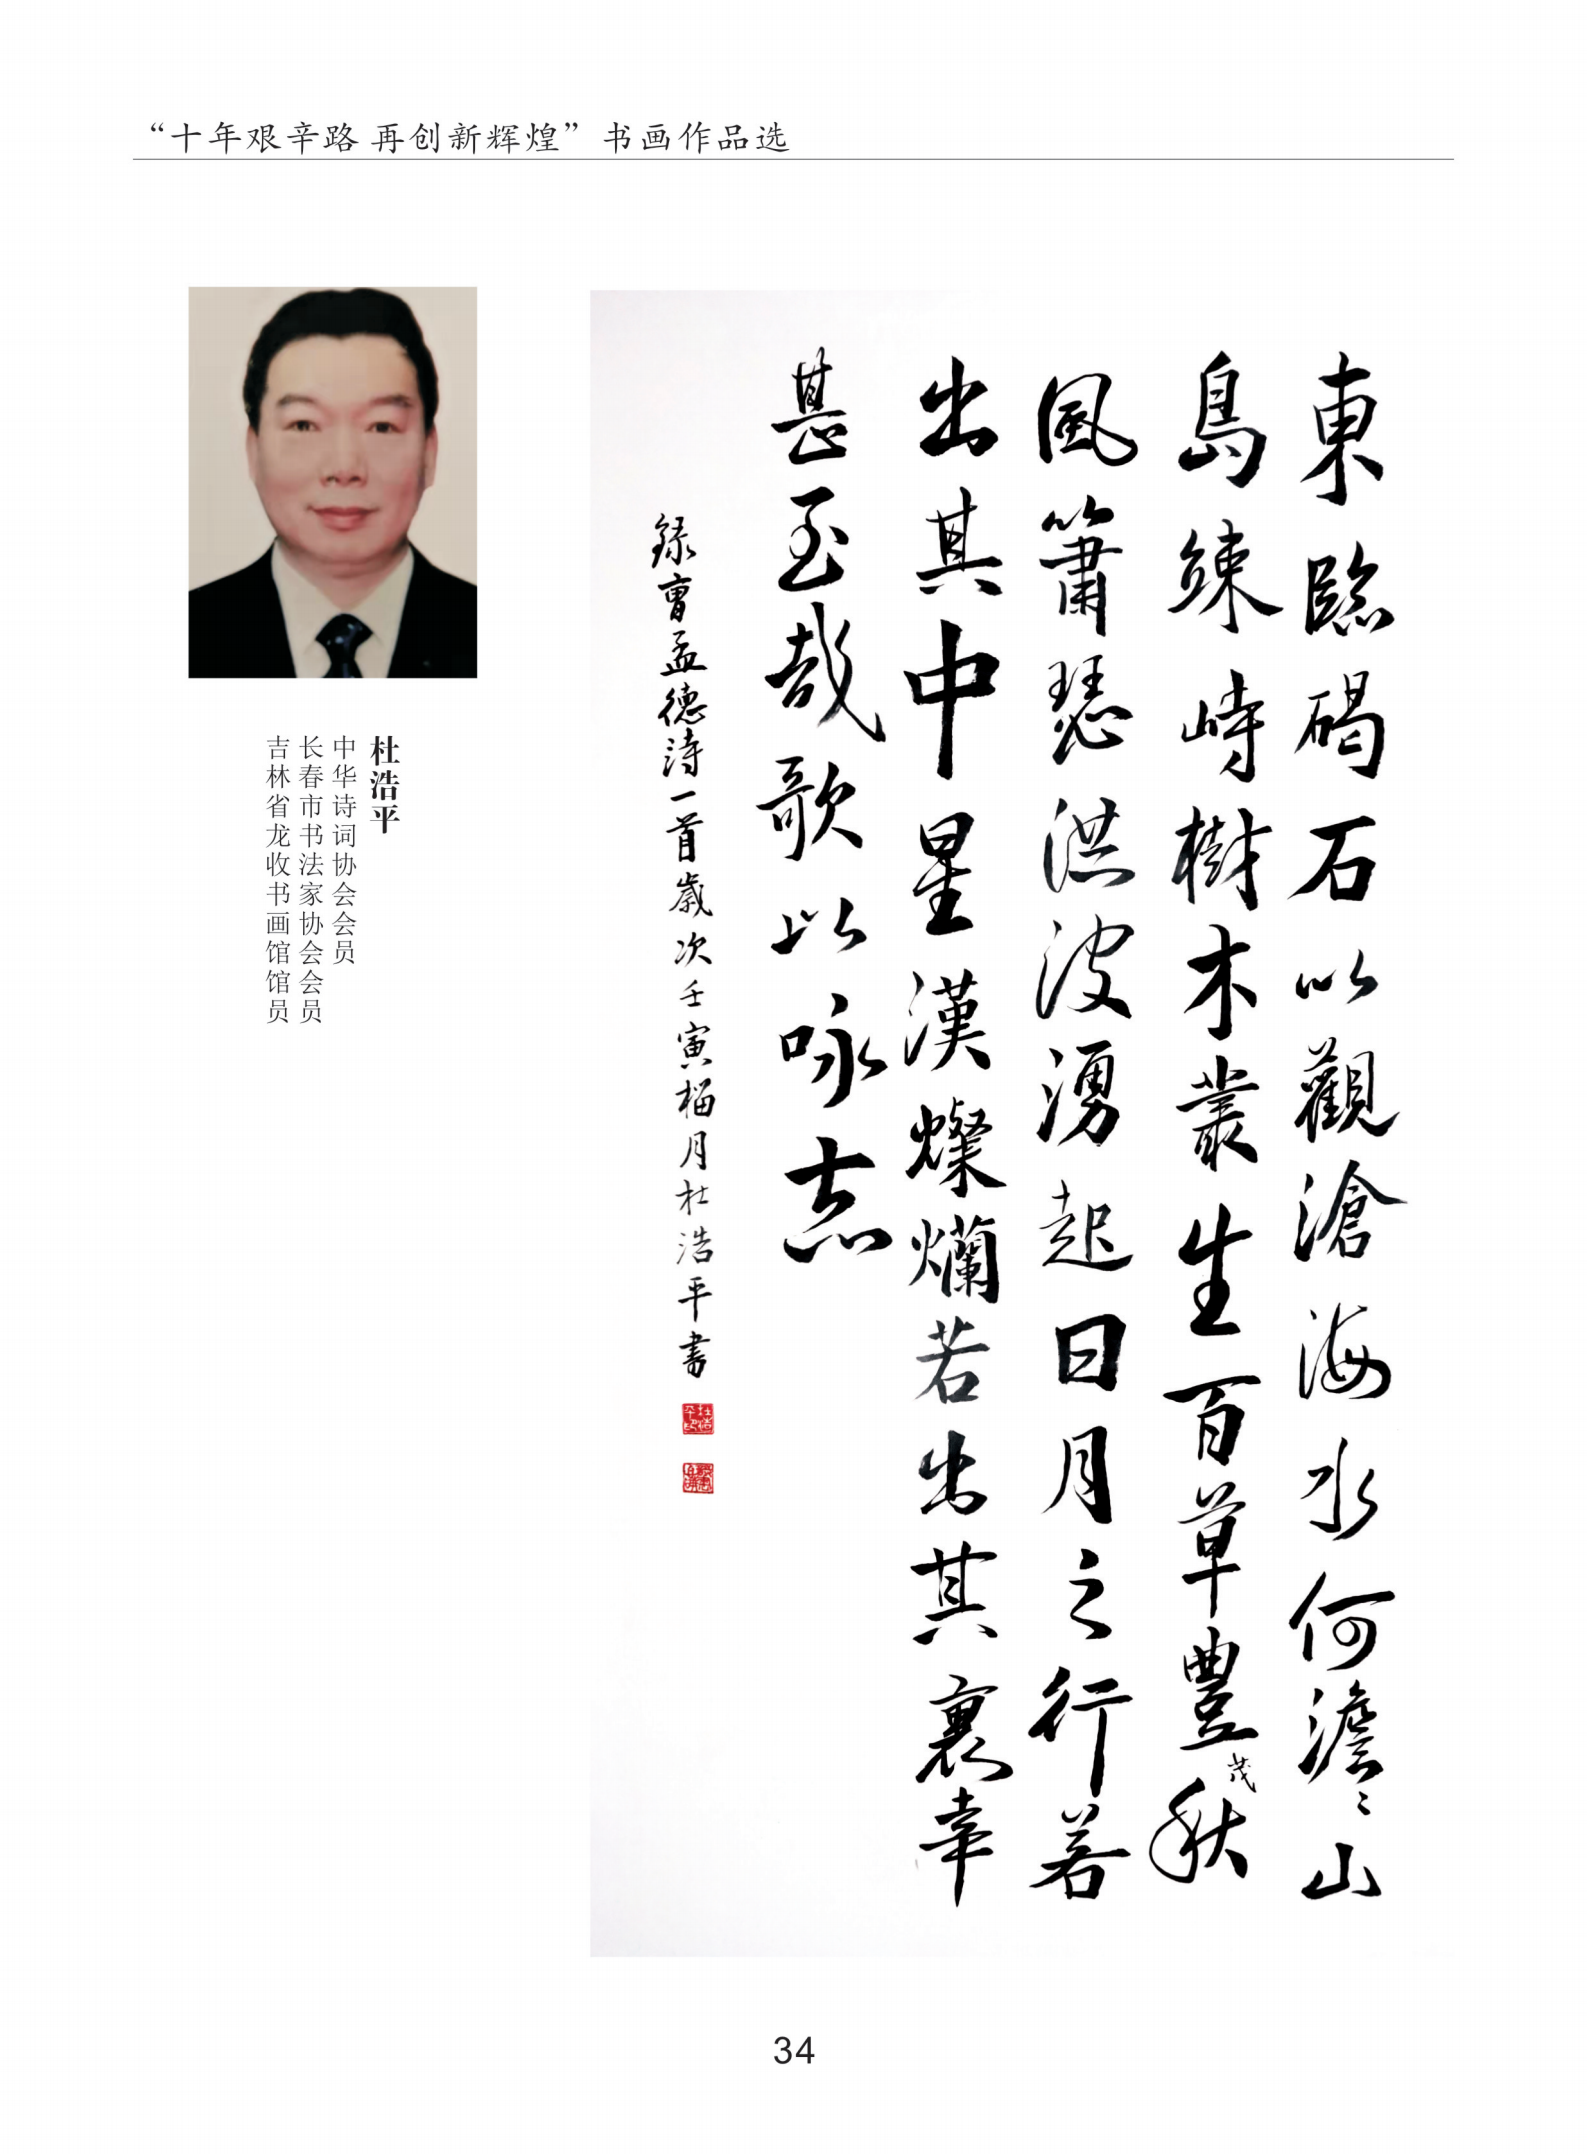 “十年艰辛路 再创新辉煌”书画作品选
杜浩平
中华诗词协会会员
长春市书法家协会会员
吉林省龙收书画馆馆员
東臨碣石以觀滄海水何澹〻山
島竦峙樹木叢生百草豊茂秋
風簫瑟洪波湧起日月之行若
出其中星漢燦爛若出其裏幸
甚至哉歌以咏志
録曹孟德詩一首歲次壬寅榴月杜浩平書
34